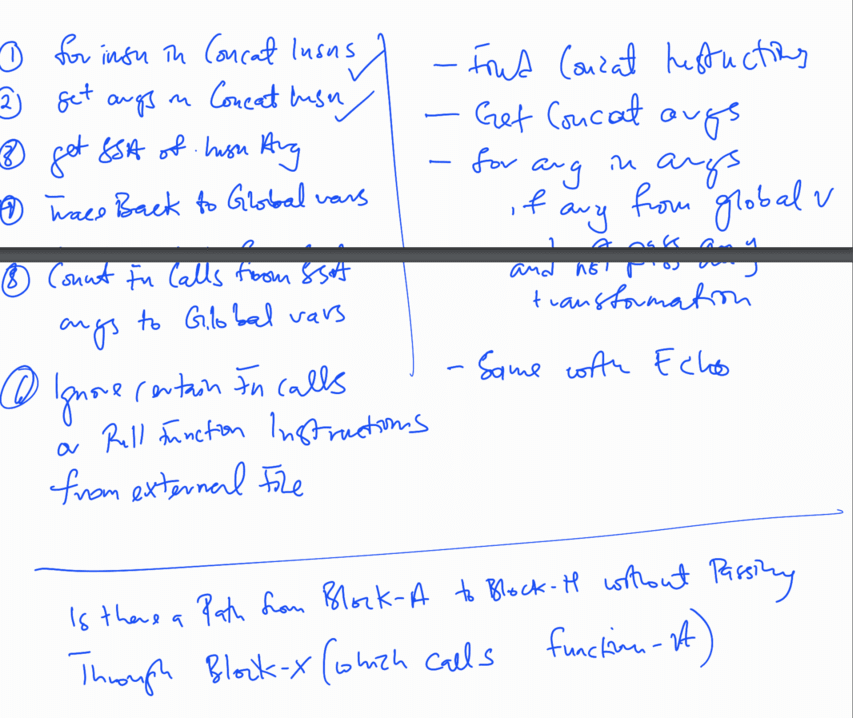 ① for insn in Concat Insns
② get args in Concat Insn
③ get SSA of Insn Arg
④ Trace Back to Global vars
⑤ Count Fn Calls from SSA
args to Global vars
⑥ Ignore certain Fn calls
or Pull Function Instructions
from external File
- Find Concat Instructions
- Get Concat args
- for arg in args
if any from global v
and not pass any
transformation
- Same with Echo
Is there a Path from Block-A to Block-H without Passing
Through Block-X (which calls function-A)